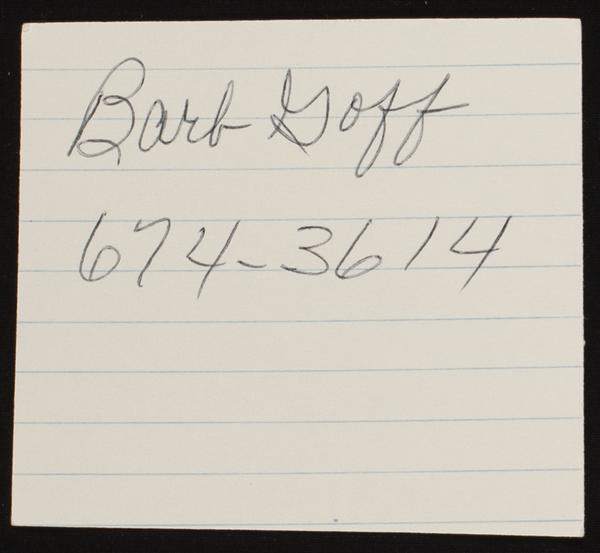 Barb Goff
674-3614